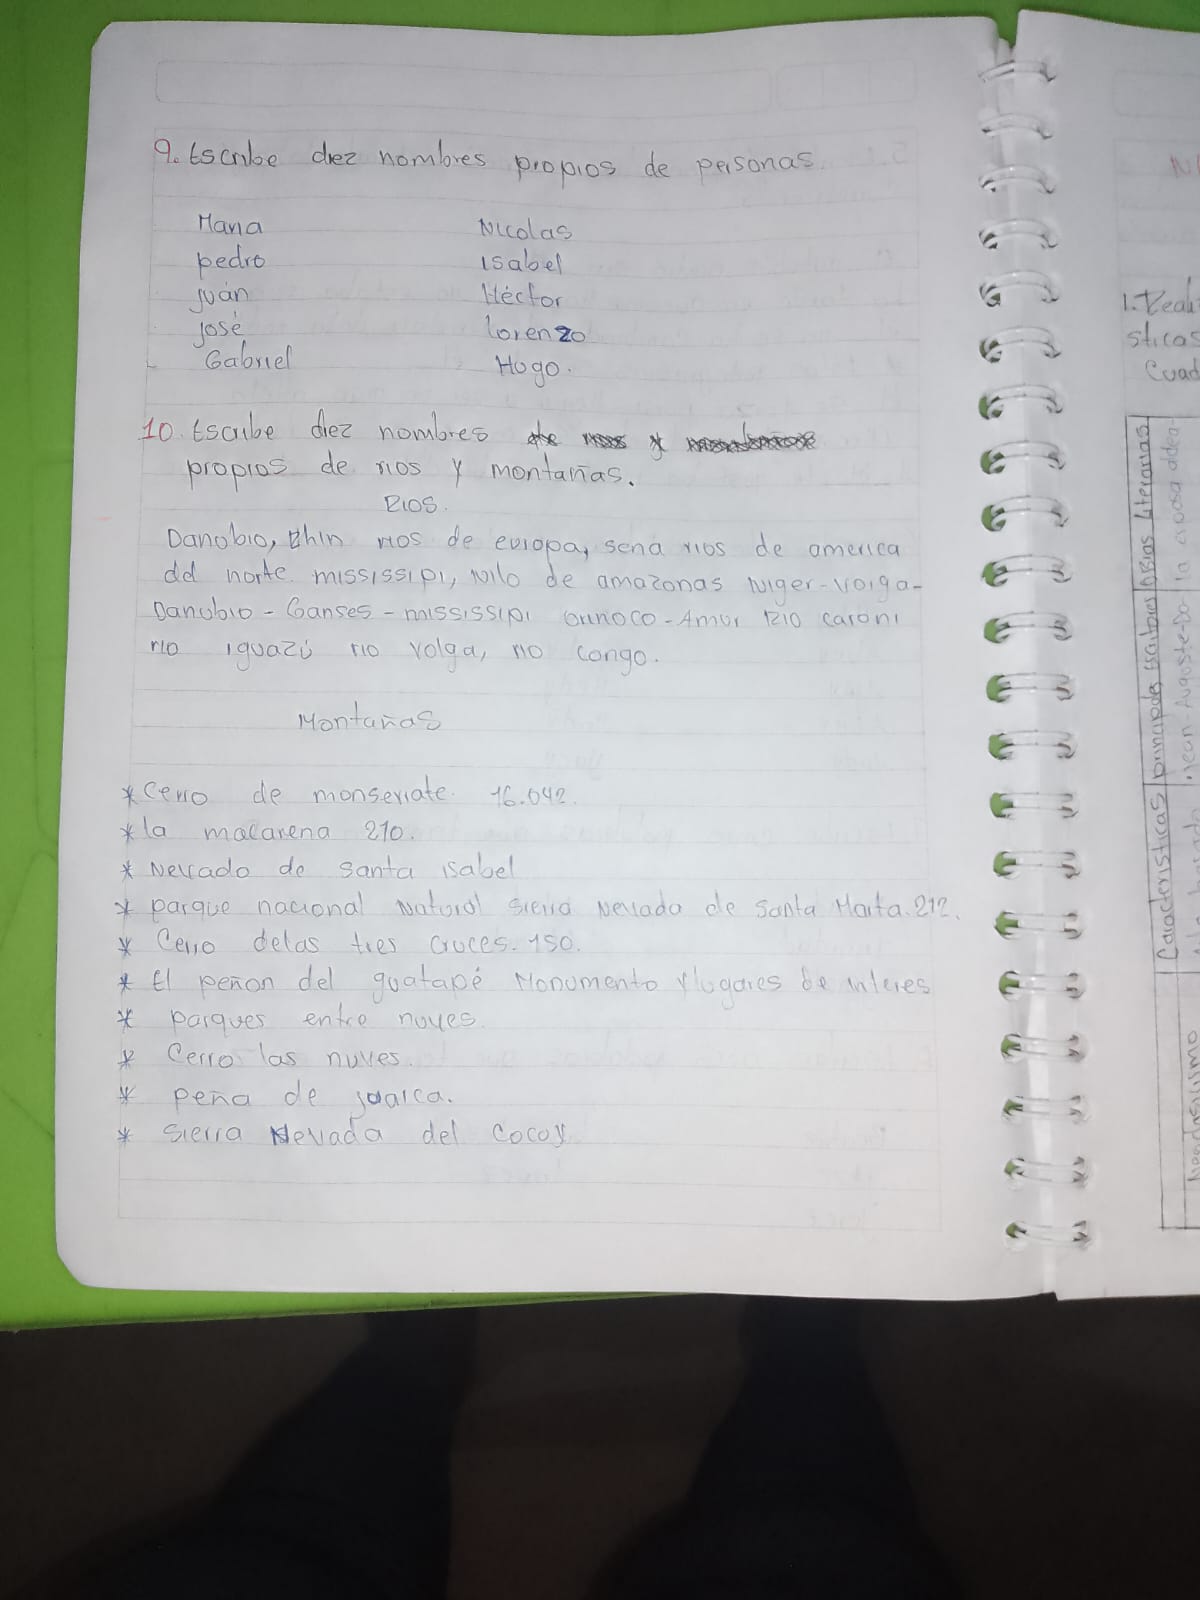 9. Escribe diez nombres propios de personas.
Maria Nicolas
pedro Isabel
juán Héctor
josé lorenzo
Gabriel Hugo.
10. Escribe diez nombres
propios de rios y montañas.
Rios.
Danobio, Rhin rios de europa, sena rios de america
del norte. mississipi, Nilo de amazonas Niger-volga-
Danubio - Ganses - mississipi orinoco - Amur Rio caroni
rio iguazú rio volga, rio congo.
Montañas
* Cerro de monserrate. 16.042.
* la macarena 210.
* Nevado de santa isabel
* parque nacional Natural sierra Nevada de Santa Marta. 212.
* Cerro delas tres cruces. 150.
* El peñon del guatapé Monumento y lugares de interes
* parques entre nuves.
* Cerro las nuves.
* peña de juaica.
* sierra Nevada del Cocoy
1. Reali
sticas
Cuad
Caracteristicas
obras literarias
Jean-Auguste-Do-